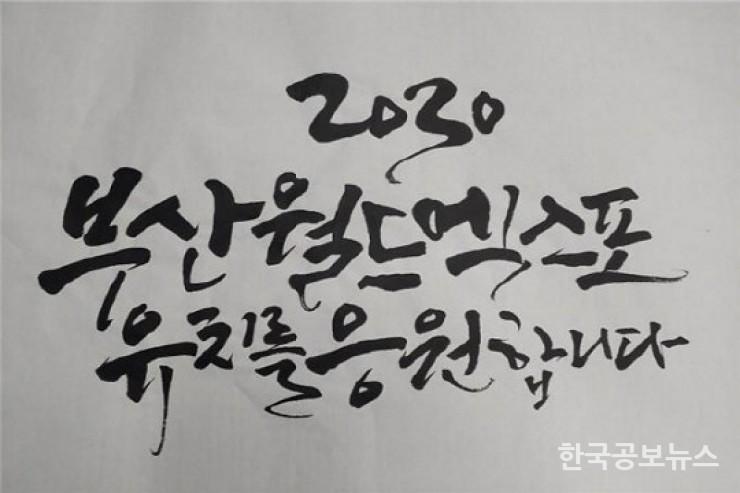 2030
부산월드엑스포
유치를응원합니다
한국공보뉴스